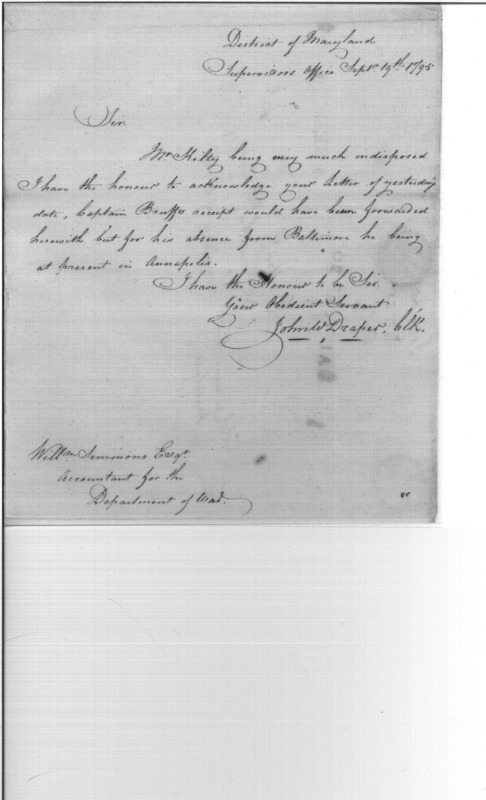 District of Maryland
Supervisors Office Sept. 19th. 1795
Sir
Mr. Kilty being very much indisposed
I have the honour to acknowledge your Letter of yesterdays
date, Captain Bruffs receipt would have been forwarded
herewith but for his absence from Baltimore he being
at present in Annapolis.
I have the Honour to be Sir
Your Obedient Servant
John W Draper, Clk.
Willm. Simmons Esqr.
Accountant for the
Department of War.